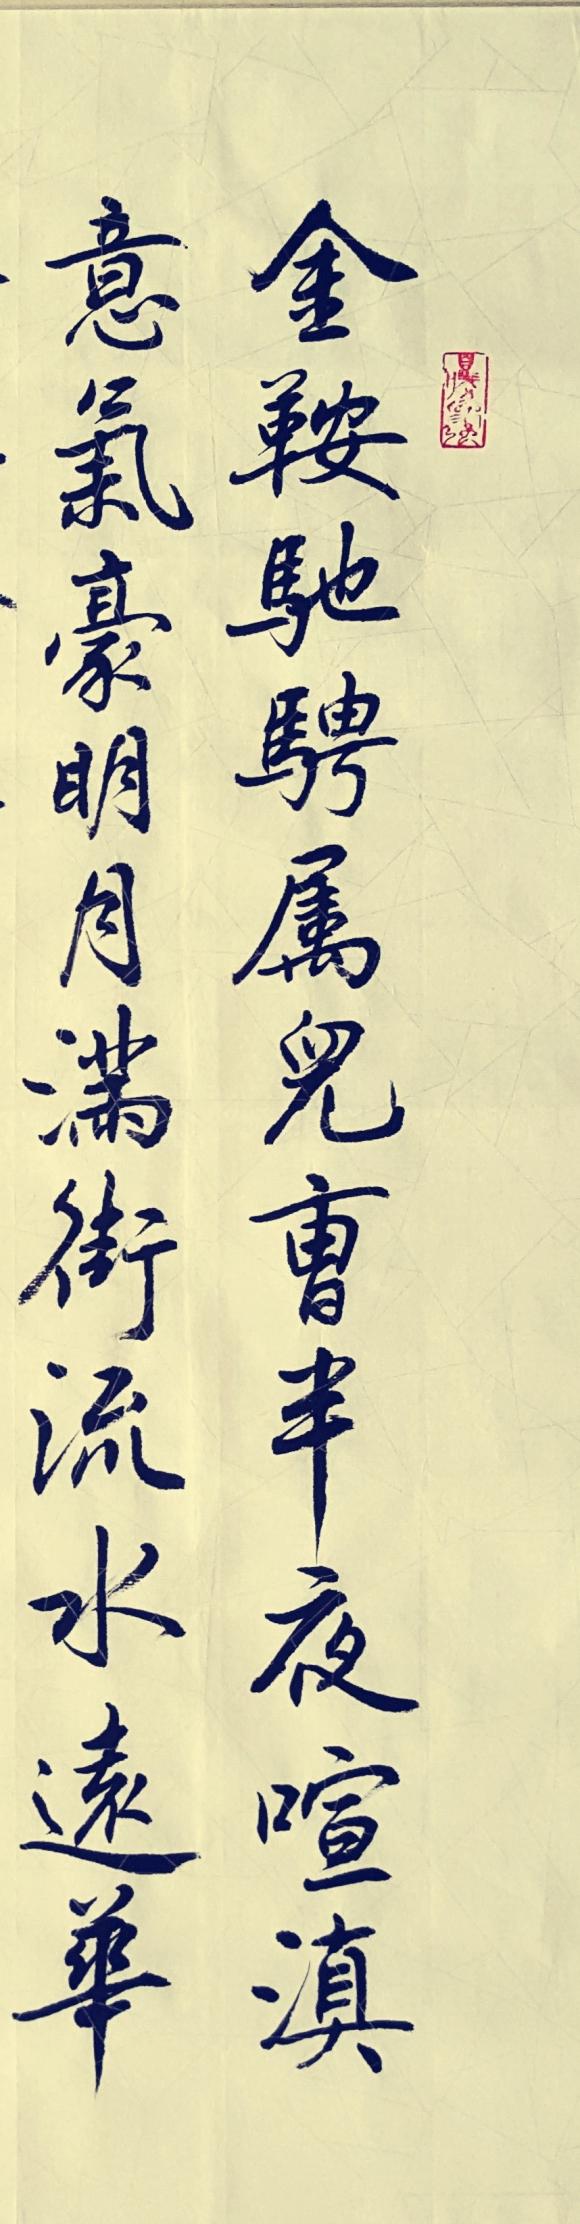 金鞍馳騁属兒曹半夜喧滇
意氣豪明月滿街流水遠華